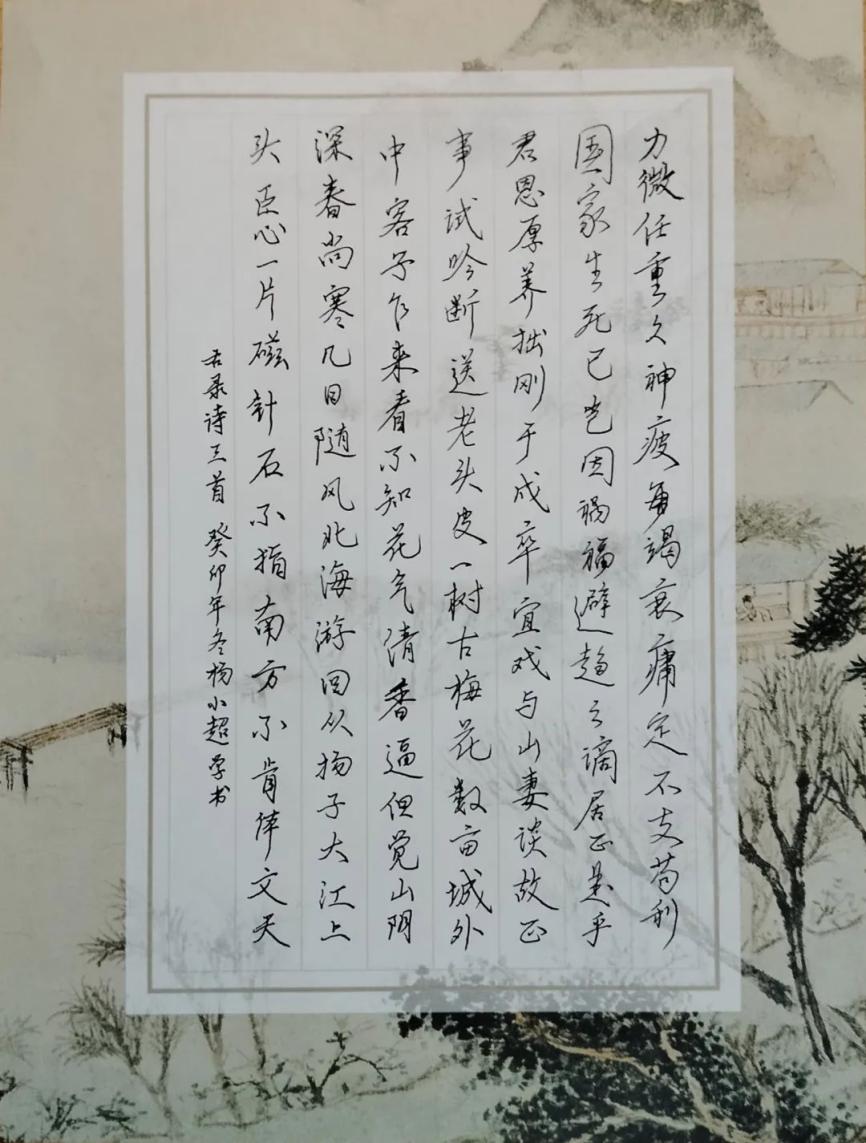 力微任重久神疲再竭衰庸定不支苟利
国家生死已岂因祸福避趋之谪居正是乎
君恩厚养拙刚于戍卒宜戏与山妻谈故正
事试吟断送老头皮一树古梅花数亩城外
中客子乍来看不知花气清香逼但觉山阴
深春尚寒几日随风北海游回从扬子大江上
头臣心一片磁针石不指南方不肯休文天
右录诗三首 癸卯年冬杨小超学书